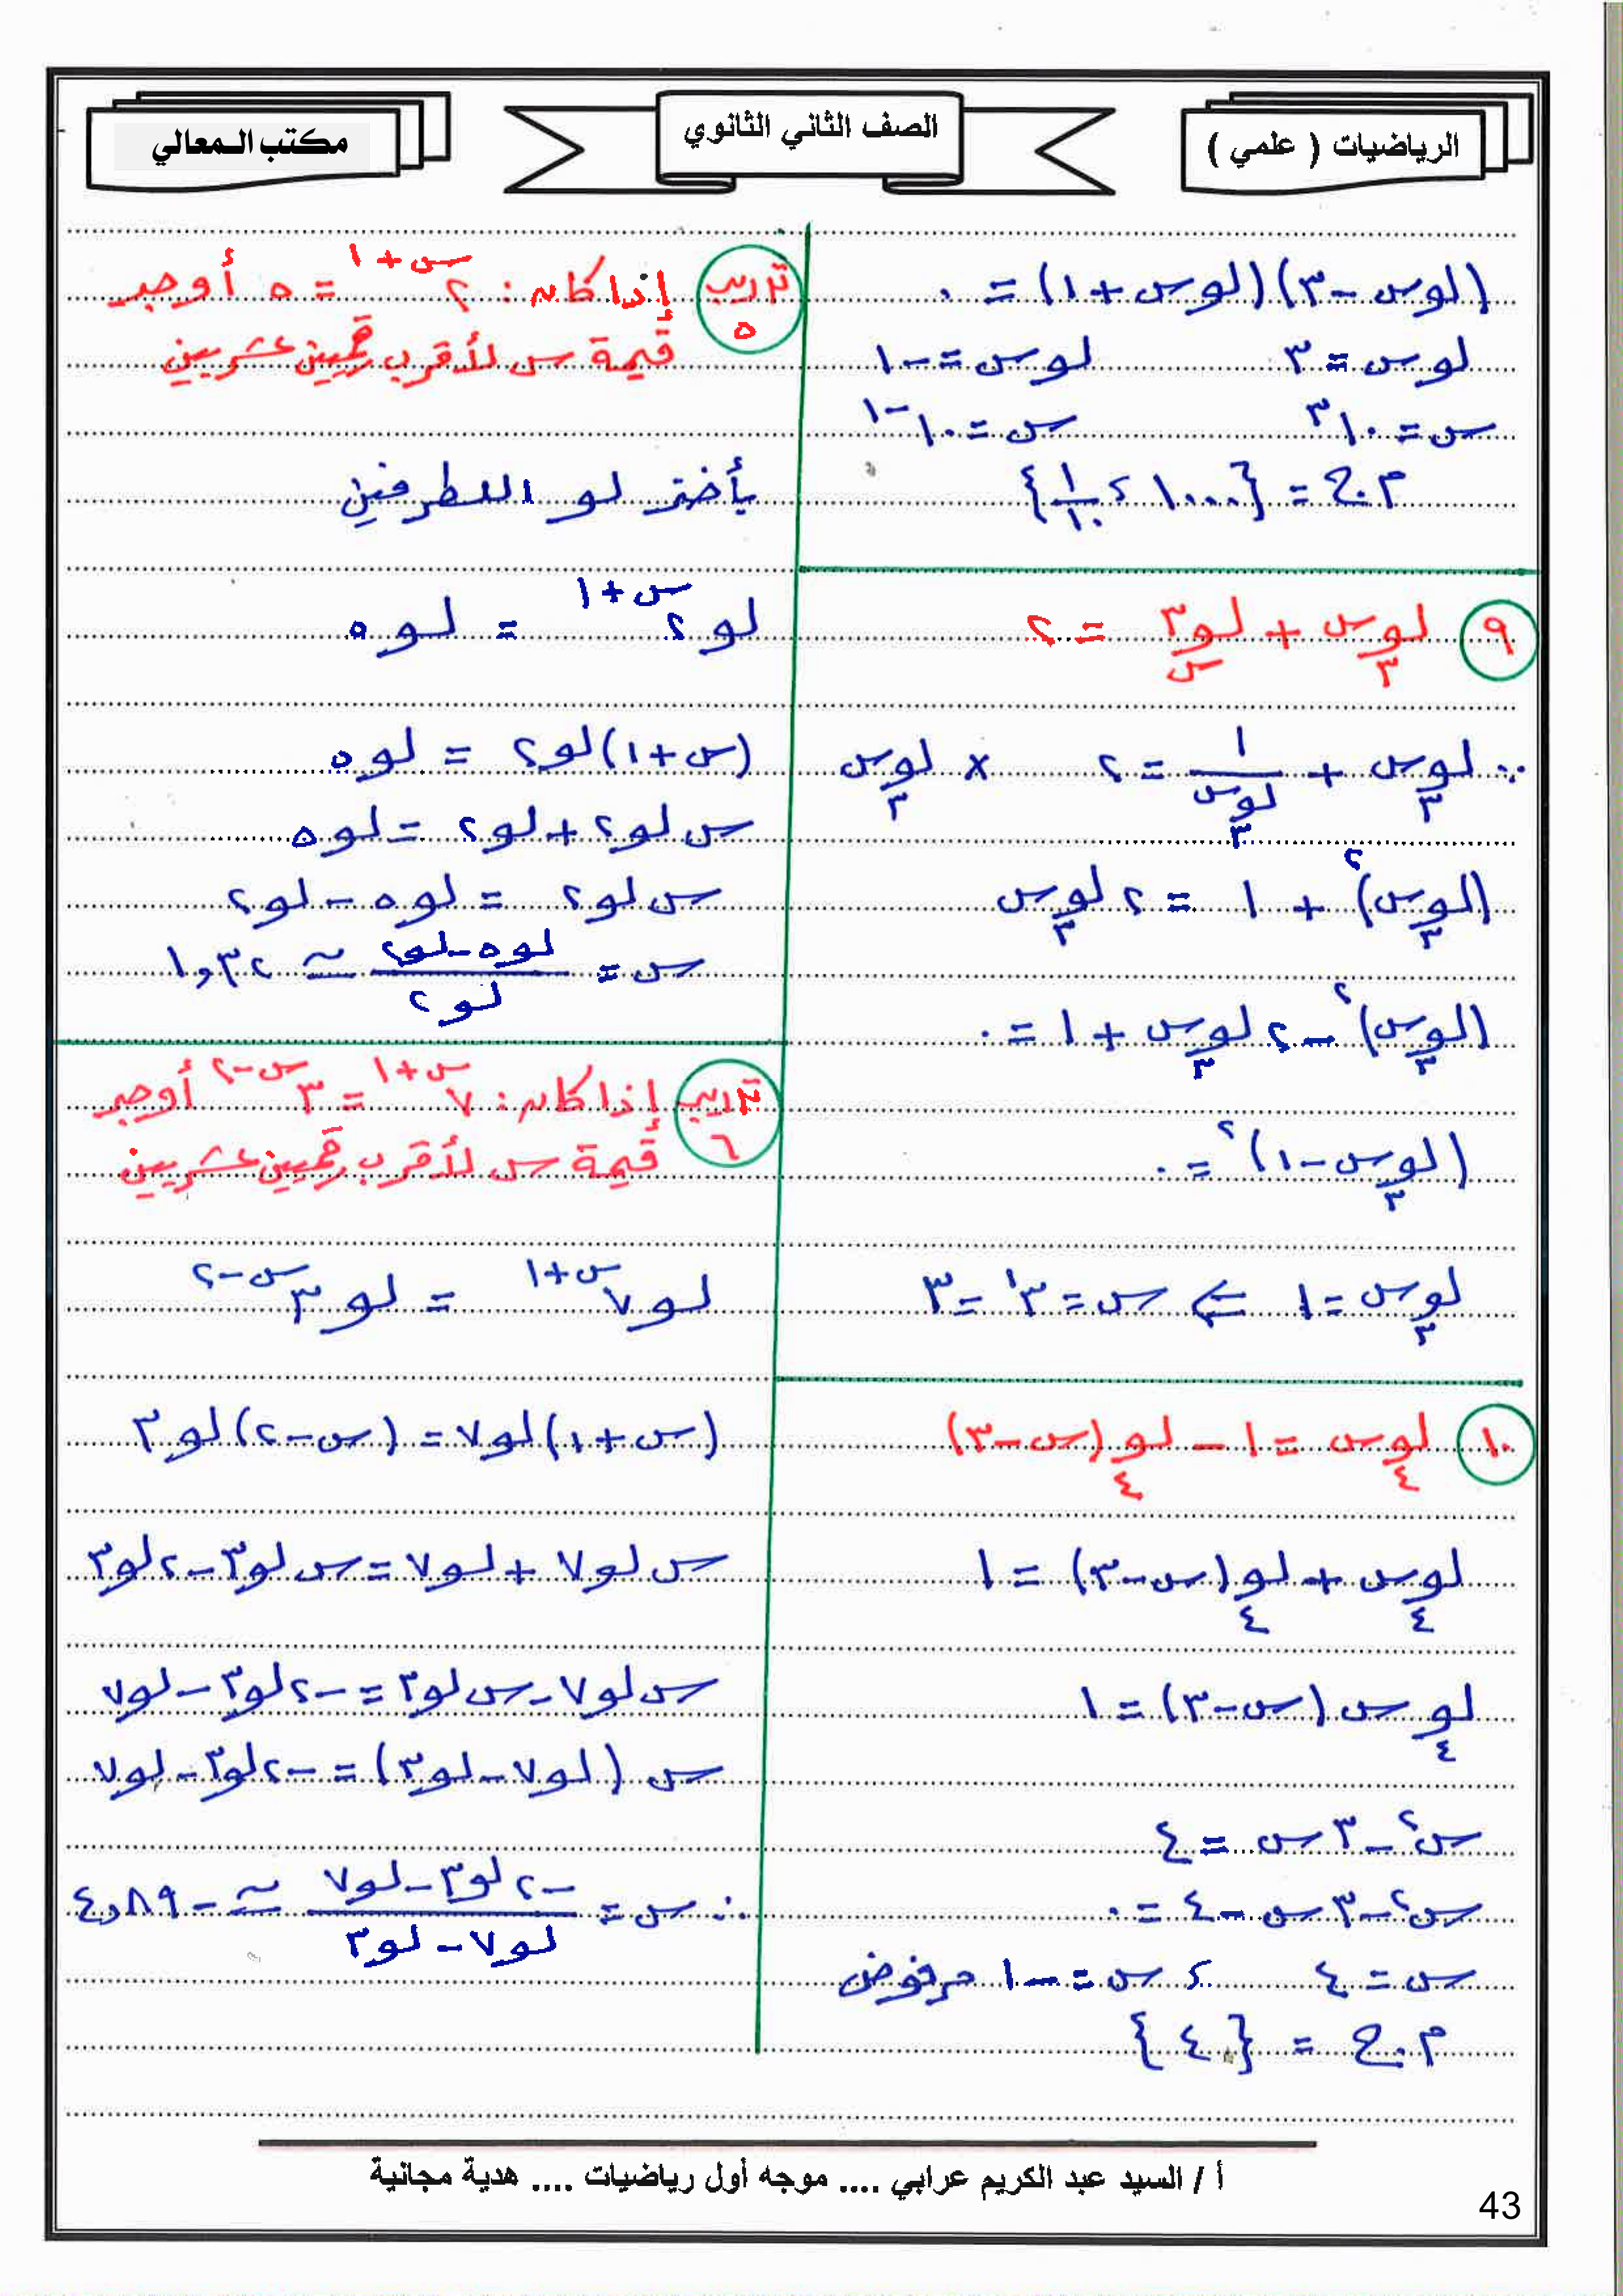 الرياضيات ( علمي )
الصف الثاني الثانوي
مكتب المعالي
(لو س - ٣)(لو س + ١) = ٠
لو س = ٣ لو س = -١
س = ١٠^٣ س = ١٠^-١
م.ح = {١٠٠٠ ، ١/١٠}
٩ لو_٣ س + لو_س ٣ = ٢
∴ لو_٣ س + ١/(لو_٣ س) = ٢ × لو_٣ س
(لو_٣ س)^٢ + ١ = ٢ لو_٣ س
(لو_٣ س)^٢ - ٢ لو_٣ س + ١ = ٠
(لو_٣ س - ١)^٢ = ٠
لو_٣ س = ١ ⇐ س = ٣^١ = ٣
١٠ لو_٤ س = ١ - لو_٤ (س - ٣)
لو_٤ س + لو_٤ (س - ٣) = ١
لو_٤ س (س - ٣) = ١
س^٢ - ٣ س = ٤
س^٢ - ٣ س - ٤ = ٠
س = ٤ ، س = -١ مرفوض
م.ح = {٤}
تدريب ٥ إذا كان : ٢^(س+١) = ٥ أوجد
قيمة س لأقرب رقمين عشريين
بأخذ لو للطرفين
لو ٢^(س+١) = لو ٥
(س + ١) لو ٢ = لو ٥
س لو ٢ + لو ٢ = لو ٥
س لو ٢ = لو ٥ - لو ٢
س = (لو ٥ - لو ٢)/(لو ٢) ≃ ١,٣٢
تدريب ٦ إذا كان : ٧^(س+١) = ٣^(س-٢) أوجد
قيمة س لأقرب رقمين عشريين
لو ٧^(س+١) = لو ٣^(س-٢)
(س + ١) لو ٧ = (س - ٢) لو ٣
س لو ٧ + لو ٧ = س لو ٣ - ٢ لو ٣
س لو ٧ - س لو ٣ = -٢ لو ٣ - لو ٧
س (لو ٧ - لو ٣) = -٢ لو ٣ - لو ٧
∴ س = (-٢ لو ٣ - لو ٧)/(لو ٧ - لو ٣) ≃ -٤,٨٩
أ / السيد عبد الكريم عرابي .... موجه أول رياضيات .... هدية مجانية
43